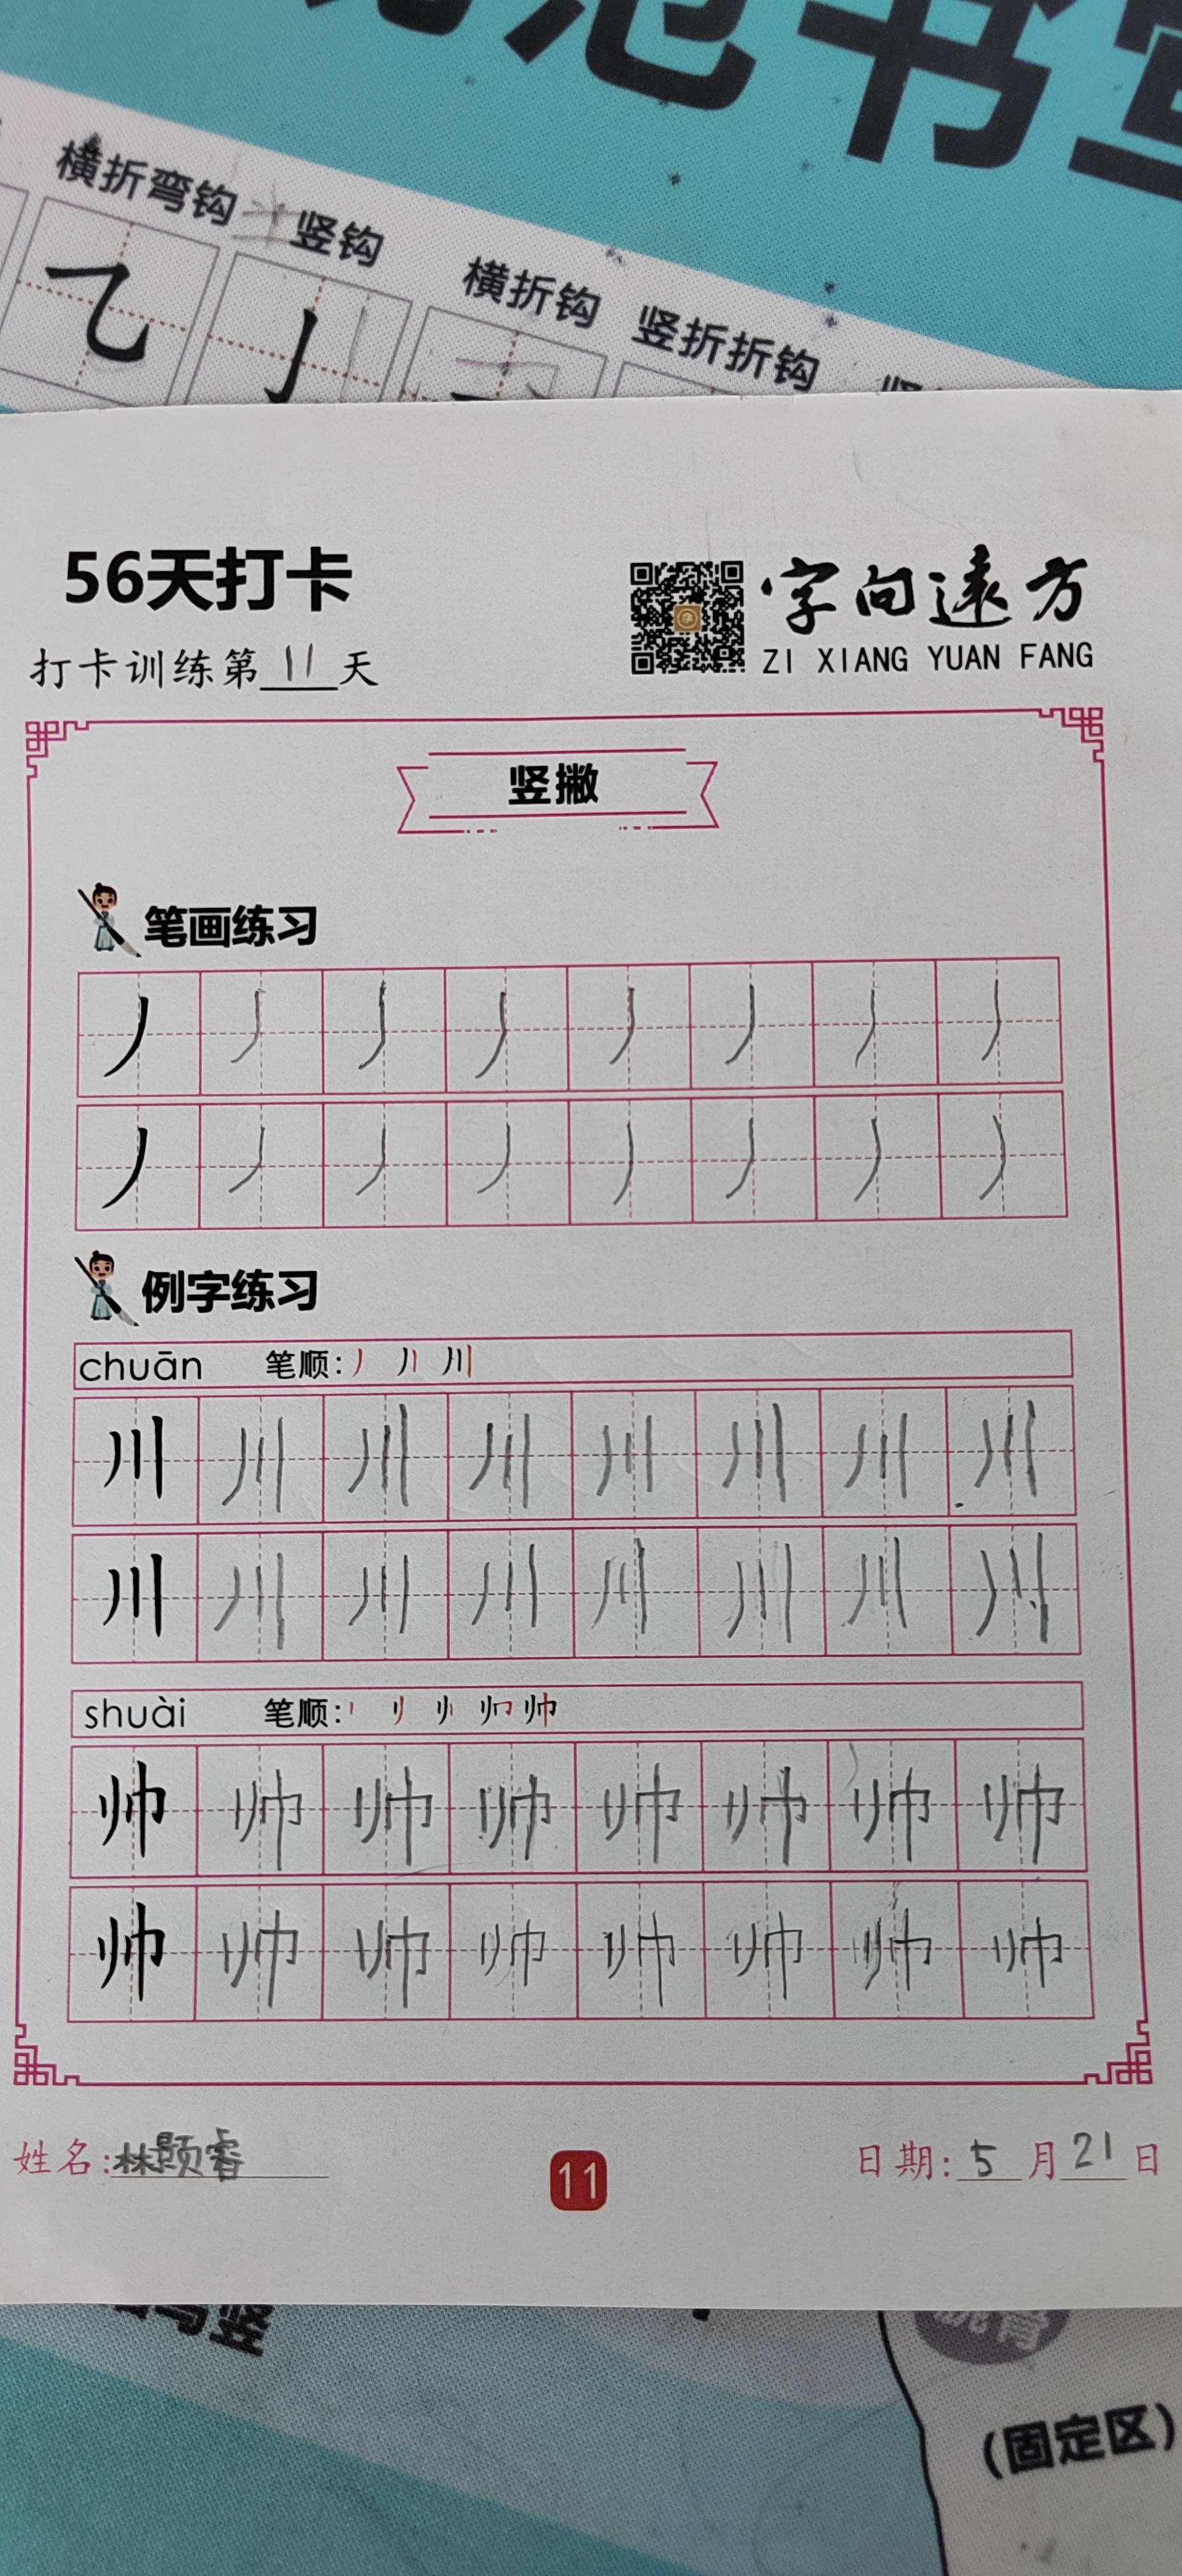 横折弯钩 竖钩 横折钩 竖折折钩
56天打卡
字向遠方
ZI XIANG YUAN FANG
打卡训练第11天
竖撇
笔画练习
丿 丿 丿 丿 丿 丿 丿 丿
丿 丿 丿 丿 丿 丿 丿 丿
例字练习
chuān 笔顺:
川 川 川 川 川 川 川 川
川 川 川 川 川 川 川 川
shuài 笔顺:
帅 帅 帅 帅 帅 帅 帅 帅
帅 帅 帅 帅 帅 帅 帅 帅
姓名:林颢睿
11
日期:5月21日
(固定区)